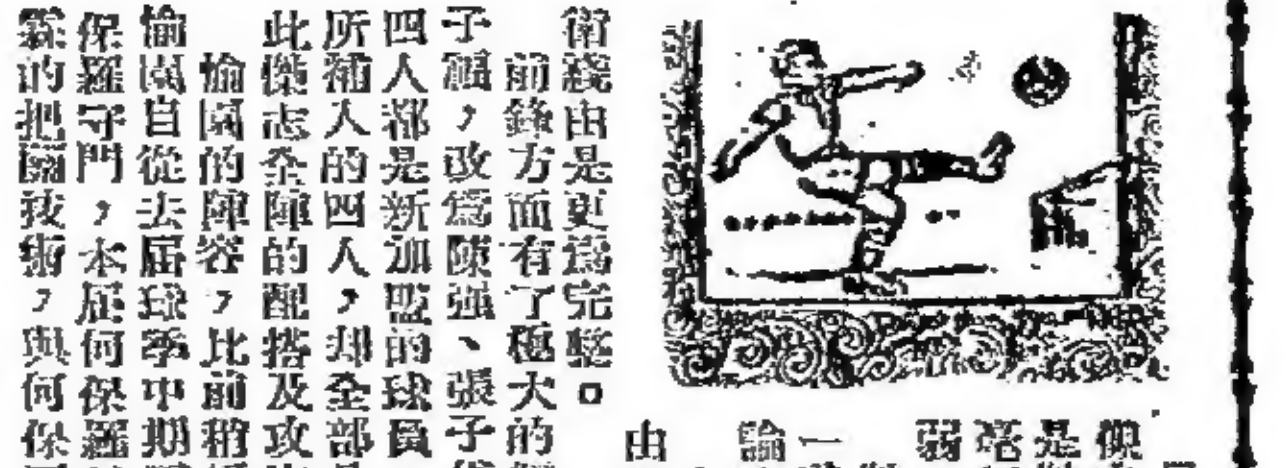 俱
是
毫
弱
一
論
由
衛綫由是更爲完整。
前鋒方面有了極大的
子，改爲陳强、張子
四人都是新加盟的球員
所補入的四人，却全部
此傑志全陣的配搭及攻
愉園的陣容，比前稍
愉園自從去屆球季中期
保羅守門，本屆何保羅
的把關技術，與何保